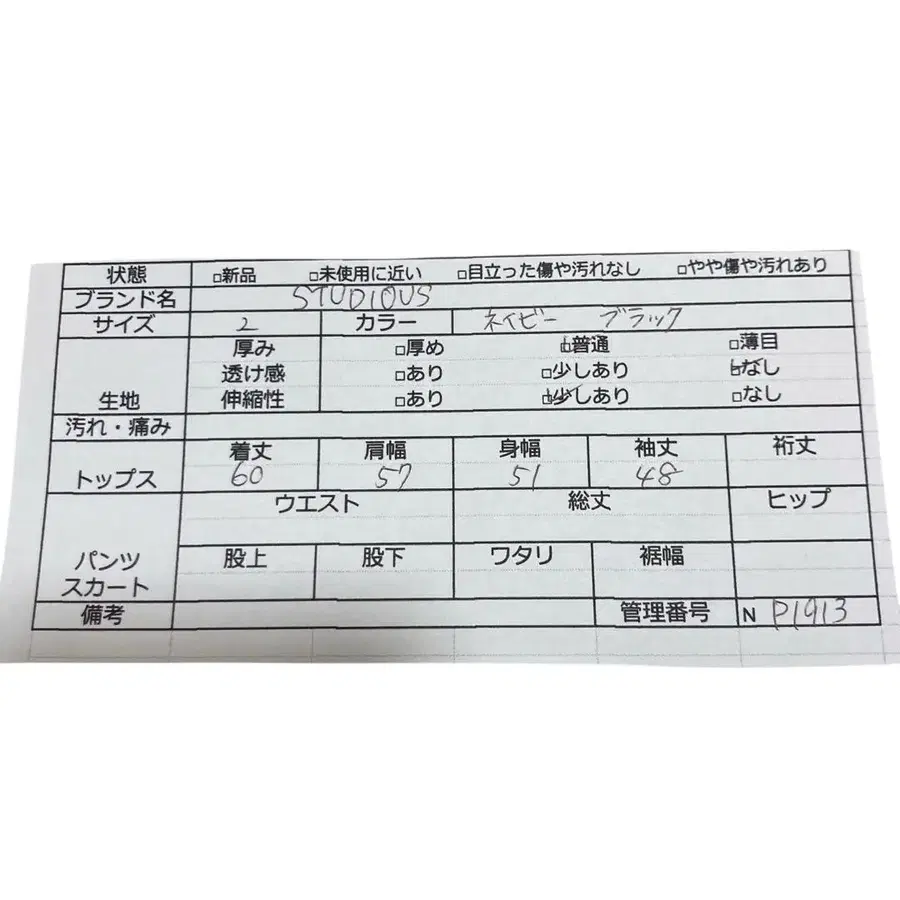 状態 □新品 □未使用に近い □目立った傷や汚れなし □やや傷や汚れあり
ブランド名 STUDIOUS
サイズ 2 カラー ネイビー ブラック
厚み □厚め □普通 □薄目
透け感 □あり □少しあり □なし
生地 伸縮性 □あり □少しあり □なし
汚れ・痛み
着丈 肩幅 身幅 袖丈 裄丈
トップス 60 57 51 48
ウエスト 総丈 ヒップ
パンツ 股上 股下 ワタリ 裾幅
スカート
備考 管理番号 N P1913